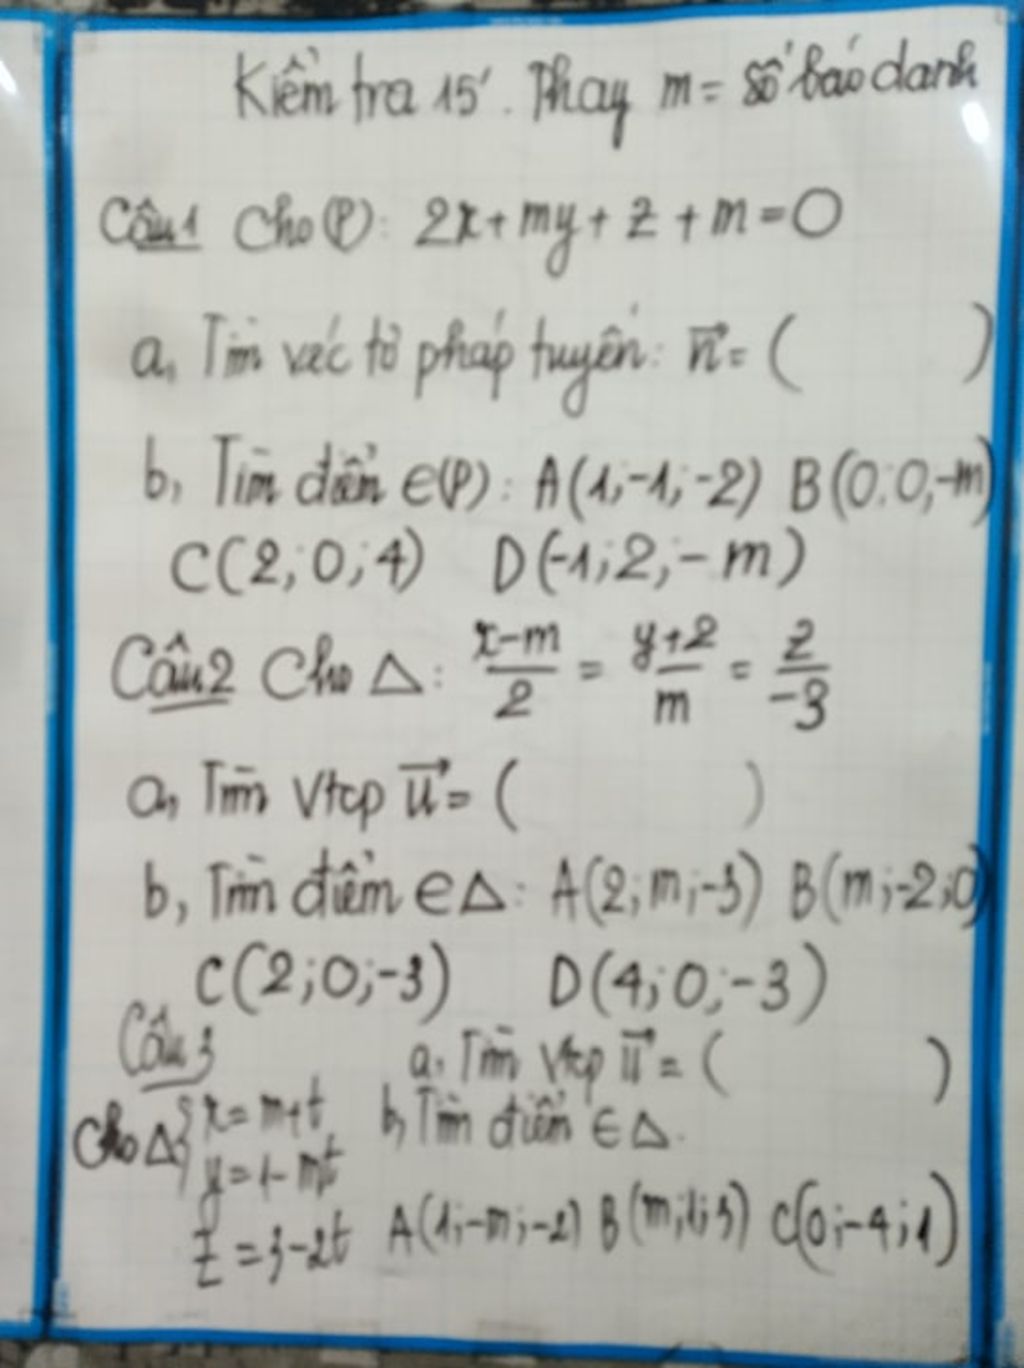 Kiểm tra 15'. Thay m = số báo danh
Câu 1 Cho (P): 2x + my + z + m = 0
a, Tìm véc tơ pháp tuyến: n⃗ = ( )
b, Tìm điểm ∈(P): A(1;-1;-2) B(0;0;-m)
C(2;0;4) D(-1;2;-m)
Câu 2 Cho Δ: (x-m)/2 = (y+2)/m = z/-3
a, Tìm Vtcp u⃗ = ( )
b, Tìm điểm ∈Δ: A(2;m;-3) B(m;-2;0)
C(2;0;-3) D(4;0;-3)
Câu 3 a, Tìm Vtcp u⃗ = ( )
Cho Δ { x = m+t b, Tìm điểm ∈Δ.
y = 1-mt
z = 3-2t A(1;-m;-2) B(m;1;3) C(0;-4;1)